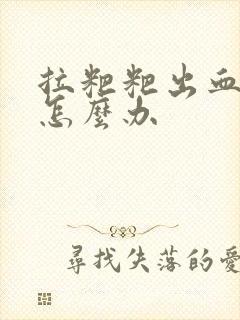 拉粑粑出血
怎麼办
尋找失落的愛